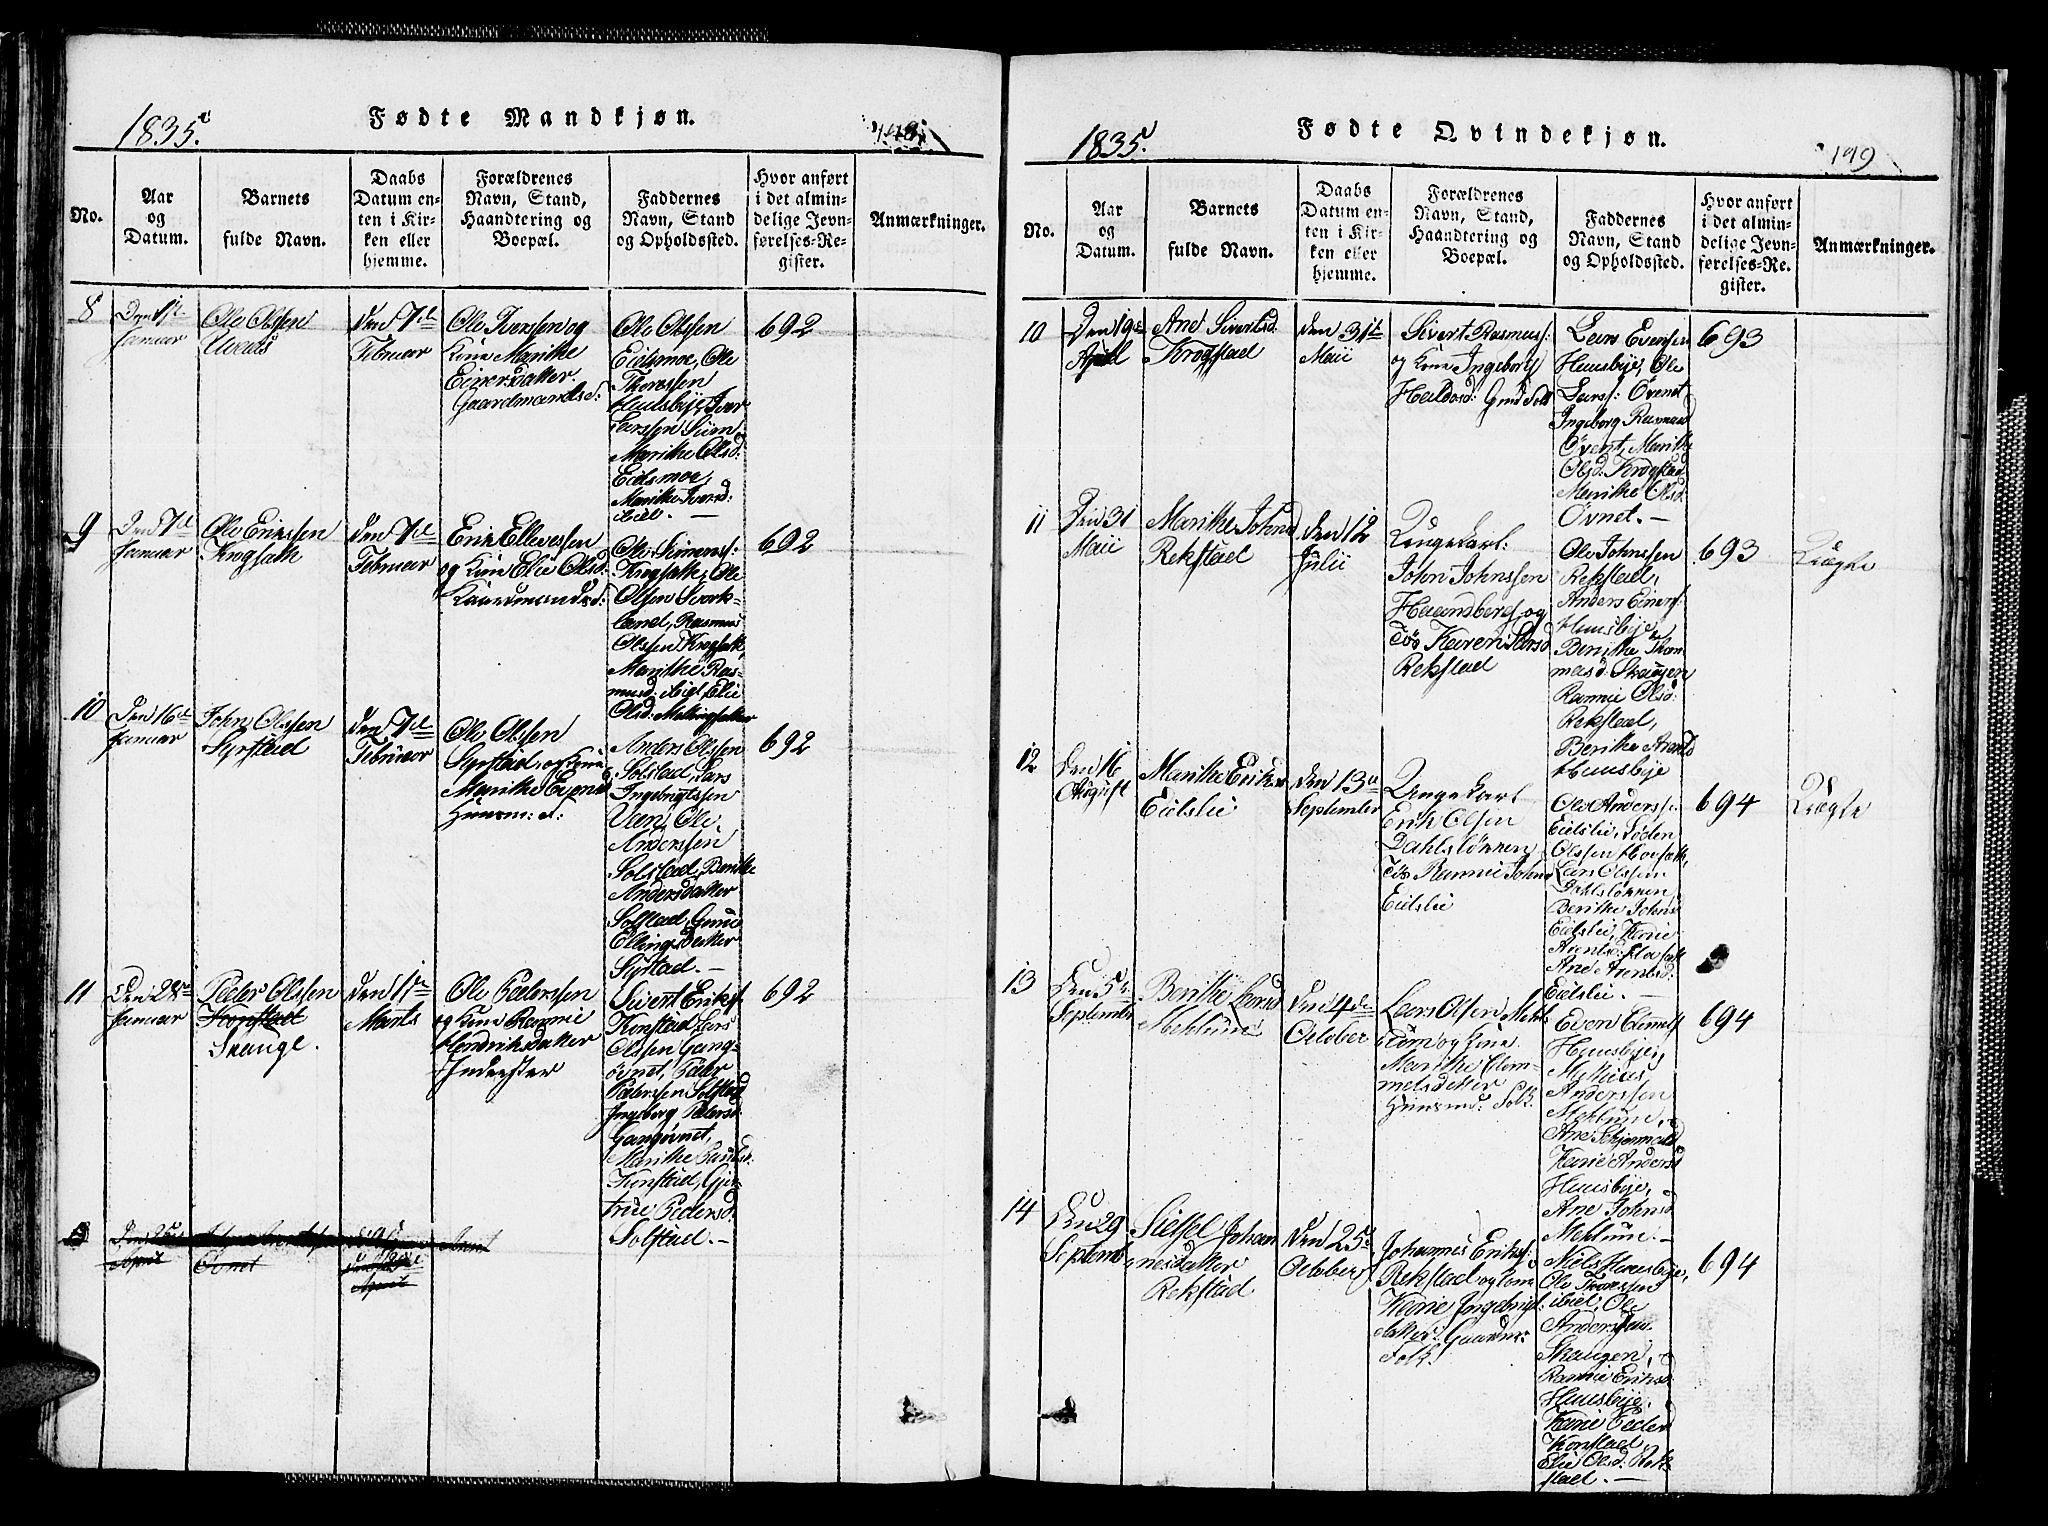 1835.
Fødte Mandkjøn.
No.
Aar
og
Datum.
Barnets
fulde Navn.
Daabs
Datum en-
ten i Kir-
ken eller
hjemme.
Forældrenes
Navn, Stand,
Haandtering og
Boepæl.
Faddernes
Navn, Stand
og Opholdssted.
Hvor anført
i det almin-
delige Jevn-
førelses-Re-
gister.
Anmærkninger.
8
Januar
Ole Olssen
Den 7de
Februar
Ole Iverssen og
Kone Marithe
Einersdatter
Gaardmands:
Ole Olssen
Eidsmoe, Ole
Thoressen
Huusbye, Iver
Larssen
Marithe Olsd:
Eidsmoe,
Marithe Iversd:
692
9
Den 7de
Januar
Ole Erikssen
Krogsæth
Den 7de
Februar
Erik Ellevssen
og Kone Elie Olsd:
Ole Simonss:
Krogsæth, Ole
Olssen Svork-
land, Rasmus
Olssen Krogsæth,
Marithe Ras-
musd: Elie
Olsd:
692
10
Den 16de
Januar
John Olssen
Syrstad
Den 7de
Februar
Ole Olssen
Syrstad, og Kone
Marithe
Anders Olssen
Solstad, Lars
Ingebrigtssen
Ole
Anderssen
Solstad, Berithe
Andersdatter
Solstad, Guru
Ellingsdatter
Syrstad.
692
11
Januar
Peder Olssen
Konstad
Skauge.
Marts
Ole Pederssen
og Kone Rannie
Hendriksdatter
Sivert Eriks:
Konstad, Lars
Olssen Gang-
øvnet, Peder
Pederssen Solstad
Ingeborg Pedersd:
Gangøvnet,
Marithe
Konstad, Gjer-
true Pedersd:
Solstad.
692
April
Øvnet
April
1835.
Fødte Qvindekjøn.
199
No.
Aar
og
Datum.
Barnets
fulde Navn.
Daabs
Datum en-
ten i Kir-
ken eller
hjemme.
Forældrenes
Navn, Stand,
Haandtering og
Boepæl.
Faddernes
Navn, Stand
og Opholdssted.
Hvor anført
i det almin-
delige Jevn-
førelses-Re-
gister.
Anmærkninger.
10
Den 19de
April
Ane Sivertsd:
Krogstad
Den 31te
Maii
Sivert Rasmuss:
og Kone Ingeborg
Haldosd:
Lars Evenssen
Huusbye, Ole
Larss: Øvnet
Ingeborg Rasmusd
Øvnet, Marithe
Olsd: Krogstad
Marithe Olsd:
Øvnet.
693
11
Den 31
Maii
Marithe Johnsd
Rekstad
Den 12
Julii
Ungekarl:
John Johnssen
Haamsberg, og
Tøs Karen Larsd
Rekstad
Ole Johnssen
Rekstad,
Anders Einers:
Huusbye
Berithe Thom-
masd: Skaugen
Rannie Olsd:
Rekstad,
Berithe Arentsd
Huusbye
693
Uægte
12
Den 16
August
Marithe Eriksd
Eidslie
Den 13de
September
Ungekarl
Erik Olsen
Dahlsløkken
Tøs Rannie Johnsd
Eidslie
Ole Anderss:
Eidslie,
Olssen
Lars Olssen
Dahlsløkken
Berithe Johnsd
Eidslie, Karie
Arentsd:
Ane Arentsd:
Eidslie.
694
Uægte
13
Den 5te
September
Berithe Larsd
Mehlum
Den 4de
October
Lars Olsen Mehl-
um og Kone
Marithe Clem-
metsdatter
Huusmd: Folk.
Even Clemmets:
Huusbye,
Anderssen
Mehlum,
Ane
Karie Andersd
Huusbye,
Ane Johnsd
Mehlum.
694
14
Den 29
Septemb:
Sissel Johan-
nesdatter
Rekstad
Den 25de
October
Johannes Eriks:
Rekstad og Kone
Karie Ingebrigt-
datter: Gaardm:
Folk.
Niels Huusbye,
Ole Thoressen
Ole
Anderssen
Skaugen,
Rannie Eriksd:
Huusbye,
Karie Pedersd
Konstad,
Elie Olsd: Rek-
stad.
694